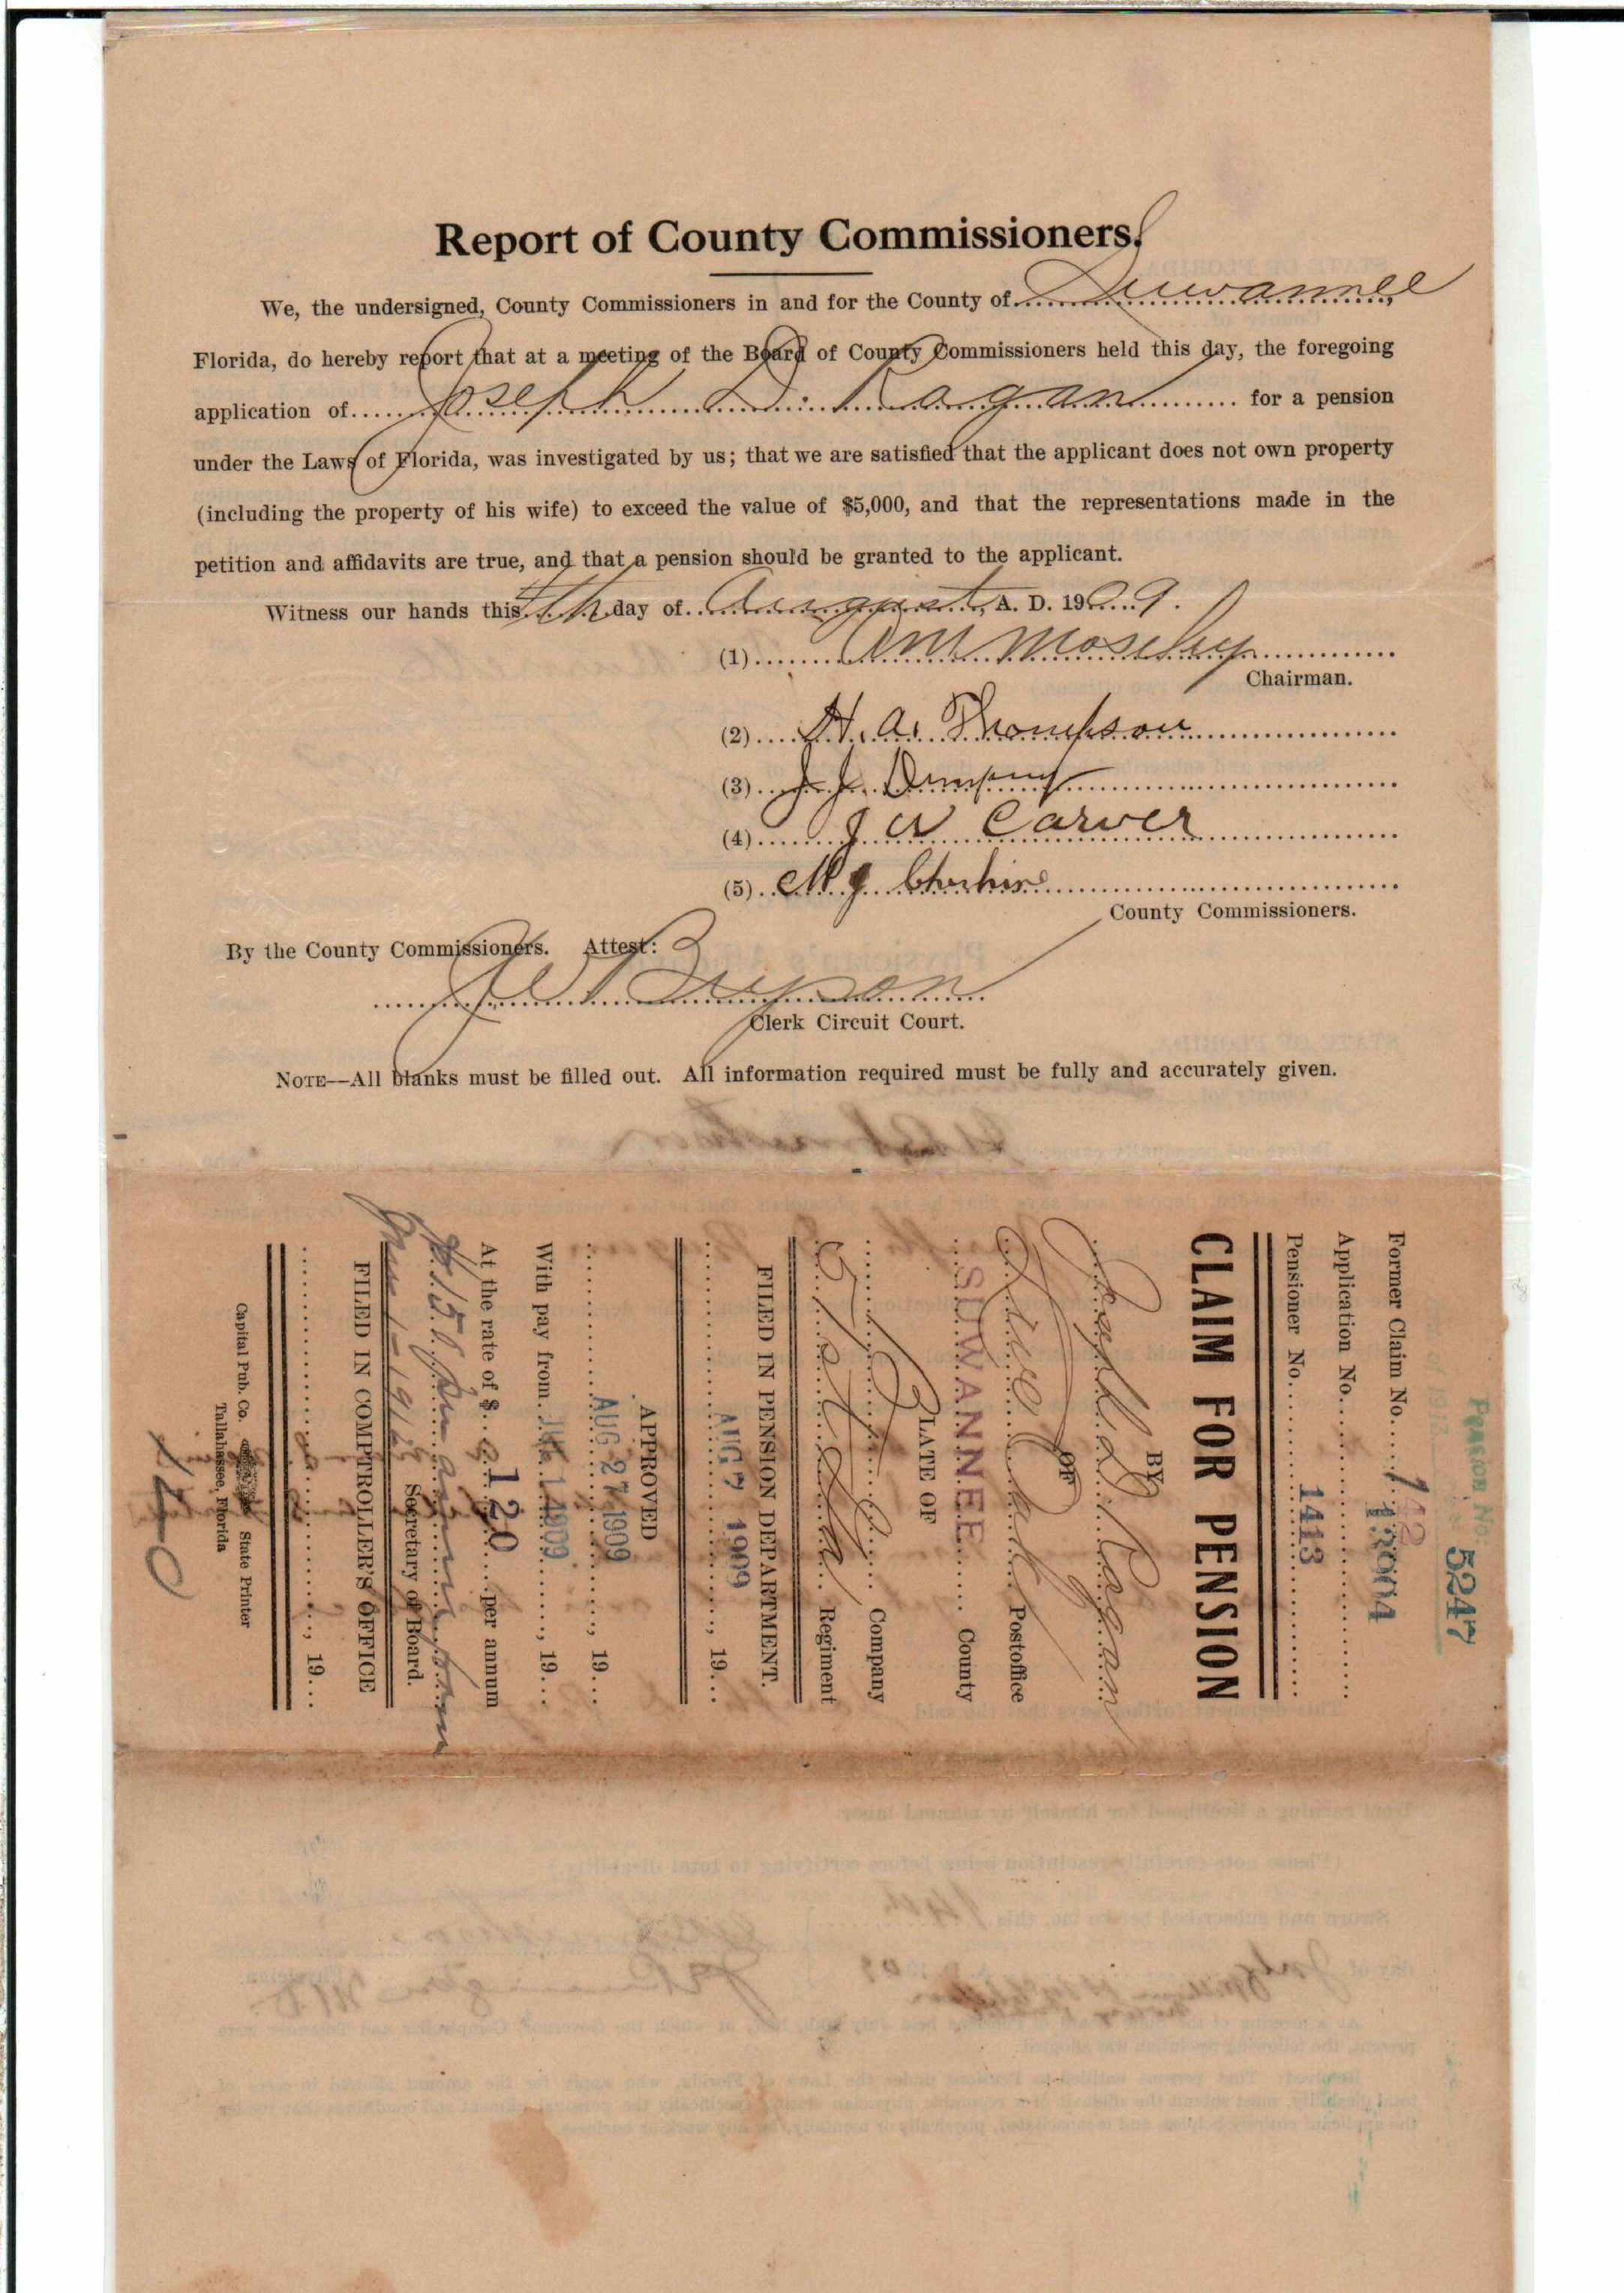 Report of County Commissioners.
We, the undersigned, County Commissioners in and for the County of Suwannee
Florida, do hereby report that at a meeting of the Board of County Commissioners held this day, the foregoing
application of Joseph D. Ragan for a pension
under the Laws of Florida, was investigated by us; that we are satisfied that the applicant does not own property
(including the property of his wife) to exceed the value of $5,000, and that the representations made in the
petition and affidavits are true, and that a pension should be granted to the applicant.
Witness our hands this day of August, A. D. 1909.
(1) Moseley
Chairman.
(2) H. A. Thompson
(3) J. J.
(4) J W Carver
(5) M J Cheshire
County Commissioners.
By the County Commissioners. Attest:
J W Bryson
Clerk Circuit Court.
NOTE—All blanks must be filled out. All information required must be fully and accurately given.
Pension No. 5247
Former Claim No.
Application No.
Pensioner No. 1413
CLAIM FOR PENSION
BY
Joseph D. Ragan
OF
Live Oak Postoffice
SUWANNEE County
LATE OF
Company
5 Fla Regiment
FILED IN PENSION DEPARTMENT.
AUG 7 1909, 19
APPROVED
AUG 27 1909, 19
With pay from 1909, 19
At the rate of $ 120 per annum
$150 per annum from
Secretary of Board.
FILED IN COMPTROLLER'S OFFICE
, 19
Capital Pub. Co. State Printer
Tallahassee, Florida